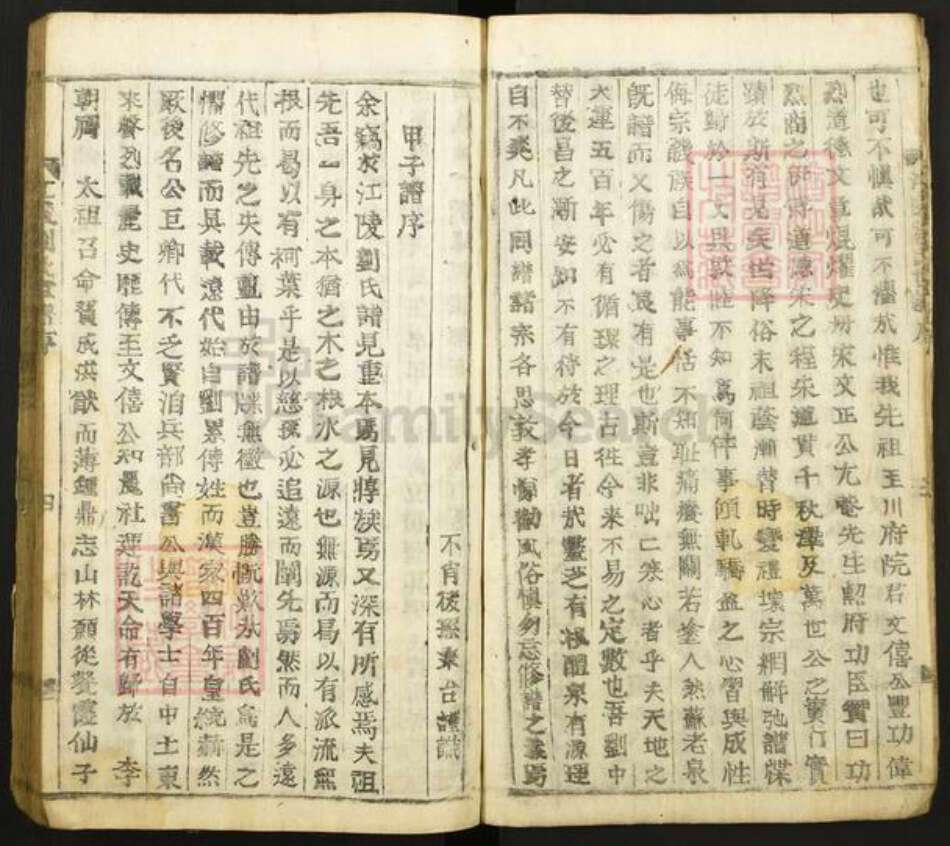 也可不愼哉可不懼哉惟我先祖玉川府院君文僖公豐功偉
烈道德文章焜燿史册宋文正公尤菴先生勲府功臣實曰功
烈商之伊傅道德宋之程朱道貫千秋澤及萬世公之實行實
蹟於斯可見矣世降俗末祖蔭漸替時變禮壞宗綱解弛譜牒
徒歸於一文具敦睦不知爲何件事傾軋驕盈之心習與成性
侮宗譏族自以爲能事恬不知耻痛癢無關若塗人然蘇老泉
旣譜而又傷之者良有是也斯豈非咄亡寒心者乎夫天地之
大運五百年必有循環之理古往今來不易之定數也吾劉中
替後昌之漸安知不有待於今日者哉靈芝有根醴泉有源理
自不爽凡此同譜諸宗各思敦孝悌勸風俗愼勿忘修譜之義焉
不肖後孫秉台謹識
甲子譜序
余竊於江陵劉氏譜見重本焉見惇族焉又深有所感焉夫祖
先吾一身之本猶之木之根水之源也無源而曷以有派流無
根而曷以有柯葉乎是以慈孫必追遠而闡先焉然而人多遠
代祖先之失傳亶由於譜牒無徵也豈勝慨歎於劉氏爲是之
懼修譜而具載遠代始自劉累傳姓而漢家四百年皇統赫然
厥後名公巨卿代不乏賢洎兵部尙書公與諸學士自中土東
來聲烈載麗史歷傳至文僖公知麗社運訖天命有歸於 李
朝膺 太祖召命贊成洪猷而薄鍾鼎志山林願從發靈仙子